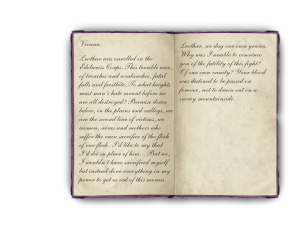 Vienna,
Lothar was enrolled in the
Edelweiss Corps. This terrible war,
of trenches and avalanches, fatal
falls and frostbite. To what heights
must man's hate ascend before we
are all destroyed? Because down
below, in the plains and valleys, we
are the second line of victims, we
women, wives and mothers who
suffer the vain sacrifice of the flesh
of our flesh. I'd like to say that
I'd die in place of him... But no,
I wouldn't have sacrificed myself
but instead done everything in my
power to get us out of this morass.
Lothar, we dug our own graves.
Why was I unable to convince
you of the futility of this fight?
Of our own vanity? Your blood
was destined to be passed on
forever, not to drain out on a
snowy mountainside.